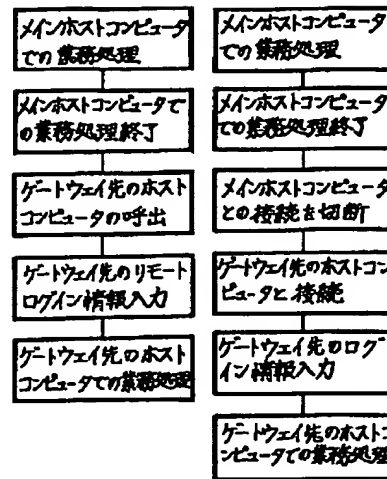 メインホストコンピュータ
での業務処理
メインホストコンピュータで
の業務処理終了
ゲートウェイ先のホスト
コンピュータの呼出
ゲートウェイ先のリモート
ログイン情報入力
ゲートウェイ先のホスト
コンピュータでの業務処理
メインホストコンピュータ
での業務処理
メインホストコンピュータ
での業務処理終了
メインホストコンピュータ
との接続を切断
ゲートウェイ先のホストコン
ピュータと接続
ゲートウェイ先のログ
イン情報入力
ゲートウェイ先のホストコ
ンピュータでの業務処理